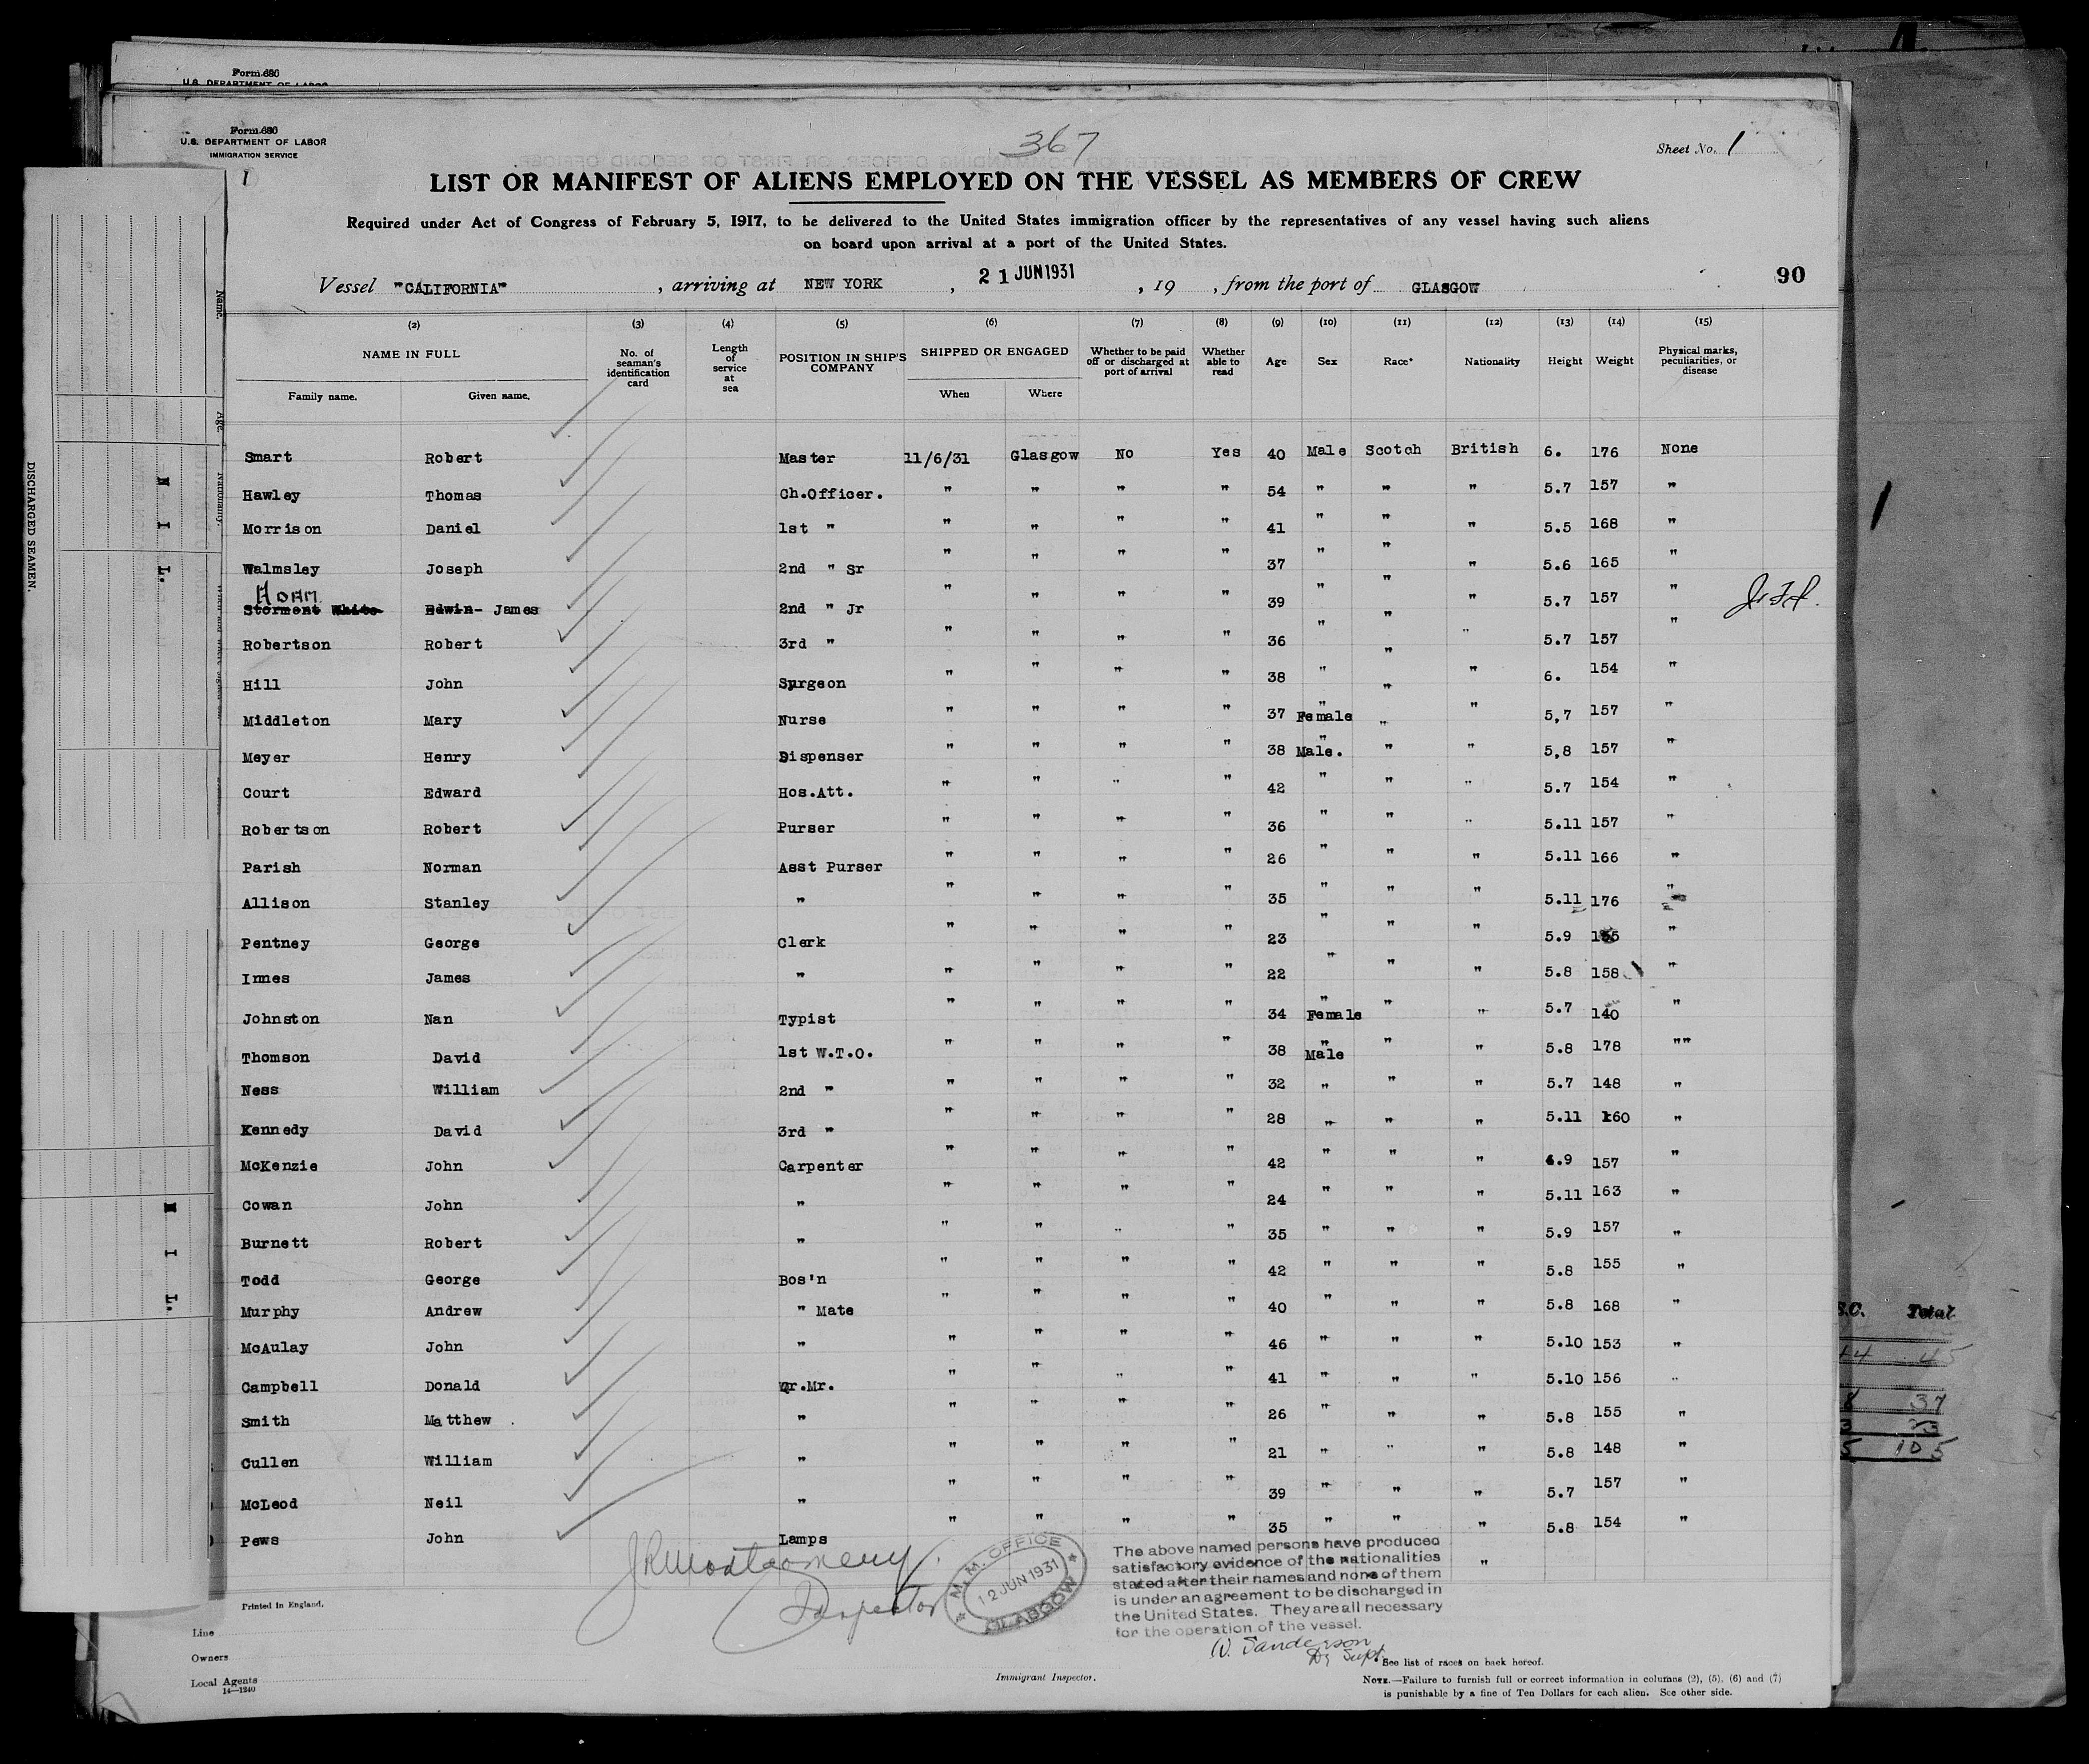 Form 680
U.S. DEPARTMENT OF LABOR
Form 680
U.S. DEPARTMENT OF LABOR
IMMIGRATION SERVICE
367
Sheet No. 1
1
LIST OR MANIFEST OF ALIENS EMPLOYED ON THE VESSEL AS MEMBERS OF CREW
Required under Act of Congress of February 5, 1917, to be delivered to the United States immigration officer by the representatives of any vessel having such aliens
on board upon arrival at a port of the United States.
Vessel "CALIFORNIA", arriving at NEW YORK, 21 JUN 1931, 19 , from the port of GLASGOW 90
(2) (3) (4) (5) (6) (7) (8) (9) (10) (11) (12) (13) (14) (15)
NAME IN FULL No. of seaman's identification card Length of service at sea POSITION IN SHIP'S COMPANY SHIPPED OR ENGAGED Whether to be paid off or discharged at port of arrival Whether able to read Age Sex Race* Nationality Height Weight Physical marks, peculiarities, or disease
Family name. Given name. When Where
Smart Robert Master 11/6/31 Glasgow No Yes 40 Male Scotch British 6. 176 None
Hawley Thomas Ch.Officer. " " " " 54 " " " 5.7 157 "
Morrison Daniel 1st " " " " " 41 " " " 5.5 168 "
Walmsley Joseph 2nd " Sr " " " " 37 " " " 5.6 165 "
Hoam
Storment White Edwin- James 2nd " Jr " " " " 39 " " " 5.7 157 "
Robertson Robert 3rd " " " " " 36 " " " 5.7 157 "
Hill John Surgeon " " " " 38 " " " 6. 154 "
Middleton Mary Nurse " " " " 37 " Female " " 5,7 157 "
Meyer Henry Dispenser " " " " 38 " Male. " " 5,8 157 "
Court Edward Hos.Att. " " " " 42 " " " 5.7 154 "
Robertson Robert Purser " " " " 36 " " " 5.11 157 "
Parish Norman Asst Purser " " " " 26 " " " 5.11 166 "
Allison Stanley " " " " " 35 " " " 5.11 176 "
Pentney George Clerk " " " " 23 " " " 5.9 "
Innes James " " " " " 22 " " " 5.8 158 "
Johnston Nan Typist " " " " 34 " Female " " 5.7 140 "
Thomson David 1st W.T.O. " " " " 38 " Male " " 5.8 178 ""
Ness William 2nd " " " " " 32 " " " 5.7 148 "
Kennedy David 3rd " " " " " 28 " " " 5.11 160 "
McKenzie John Carpenter " " " " 42 " " " .9 157 "
Cowan John " " " " " 24 " " " 5.11 163 "
Burnett Robert " " " " " 35 " " " 5.9 157 "
Todd George Bos'n " " " " 42 " " " 5.8 155 "
Murphy Andrew " Mate " " " " 40 " " " 5.8 168 "
McAulay John " " " " " 46 " " " 5.10 153 "
Campbell Donald Qr.Mr. " " " " 41 " " " 5.10 156 "
Smith Matthew . " " " " " 26 " " " 5.8 155 "
Cullen William " " " " " 21 " " " 5.8 148 "
McLeod Neil " " " " " 39 " " " 5.7 157 "
Pews John Lamps " " " " 35 " " " 5.8 154 "
"
J R Montgomery.
Inspector
M.M. OFFICE
12 JUN 1931
GLASGOW
The above named persons have produced
satisfactory evidence of the nationalities
stated after their names and none of them
is under an agreement to be discharged in
the United States. They are all necessary
for the operation of the vessel.
W. Sanderson
Dy Supt.
Printed in England.
Line
Owners
Local Agents
14—1240
Immigrant Inspector.
See list of races on back hereof.
NOTE.—Failure to furnish full or correct information in columns (2), (5), (6) and (7)
is punishable by a fine of Ten Dollars for each alien. See other side.
DISCHARGED SEAMEN.
Name.
Age.
Nationality.
N I L.
N I L.
S.C. Total
44 45
8 37
3 23
5 105